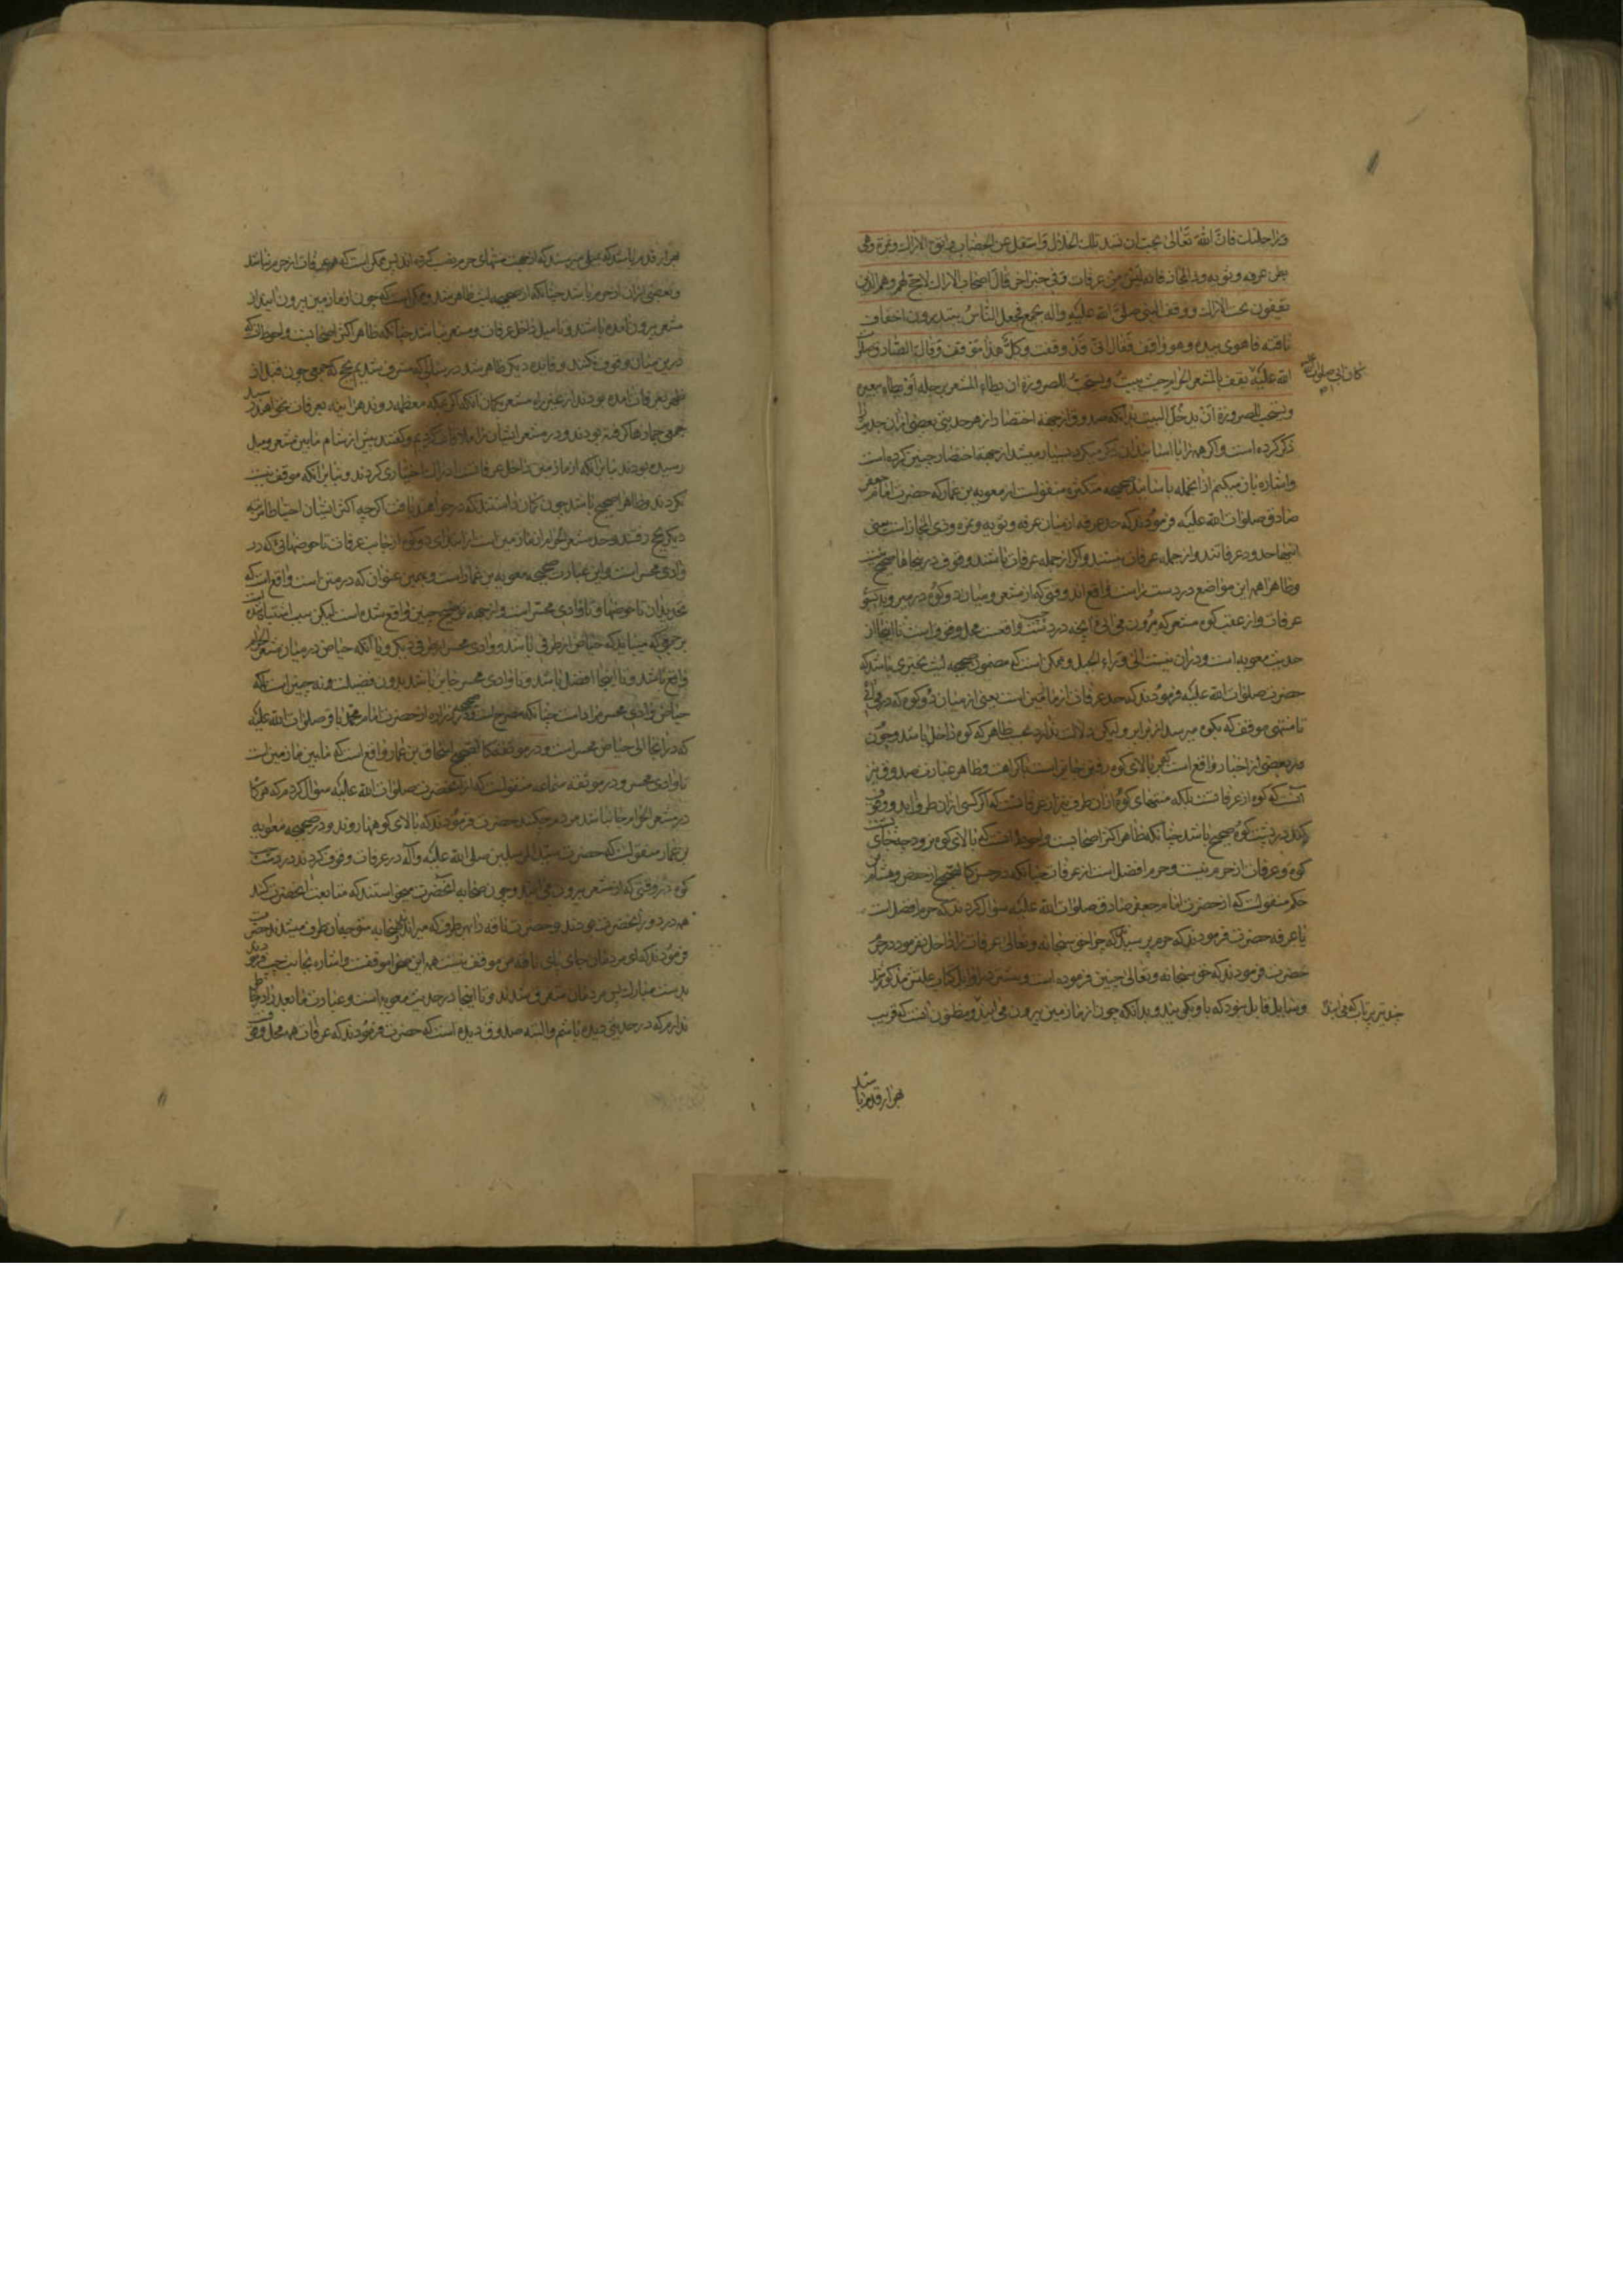 وراحلتك فان الله تعالی یحب ان تسد تلك الخلال واسفل عن الهضاب واتق الاراك ونمره وهی
بطن عرنه وثویه وذا المجاز فانه لیس من عرفات وفی خبر اخر قال اصحاب الاراك لا حج لهم وهم الذین
یقفون تحت الاراك ووقف النبی صلی الله علیه واله بجمع فجعل الناس یبتدرون اخفاف
ناقته فاهوی بیده وهو واقف فقال انی قد وقفت وکل هذا موقف وقال الصادق صلوات
الله علیه یقف بالمشعر الحرام حیث یبیت ویستحب للصرورة ان یطاء المشعر برجله او یطاه ببعیره
کان ابی صلوات الله علیه
ویستحب للصرورة ان یدخل البیت بدانکه صدوق از جهة اختصار از هر حدیثی بعضی ازان حدیث را
ذکر کرده است و اکر همه را با اسانید ان ذکر میکرد بسیار میشد از جهة اختصار چنین کرده است
واشاره بان میکنم از انجمله باسانید صحیحه متکثره منقولست از معویه بن عمار که حضرت امام جعفر
صادق صلوات الله علیه فرمودند که حد عرفه از میان عرنه وثویه ونمره وذی المجاز است یعنی
اینها حدود عرفاتند و از جمله عرفات نیستند واکر از جمله عرفات باشند وقوف در بنجاها صحیح نیست
وظاهرا همه این مواضع در دست راست واقع اند وقتی که از مشعر ومیان دو کوه در میروید بسوی
عرفات واز عقب کوه مشعر که بیرون می ائی انچه در دست چب واقعست محل وقوف است تا اینجا از
حدیث معویه است ودران نیست الی وراء الجبل وممکن است که مضمون صحیحه لیث بختری باشد که
حضرت صلوات الله علیه فرمودند که حد عرفات از مازمین است یعنی از میان دو کوه که در می آئی
تا منتهی موقف که بکوه میرسد از برابر ولیکن دلالت ندارد بحسب ظاهر که کوه داخل باشد وچون
در بعضی از اخبار واقع است که بر بالای کوه رفتن جایز است با کراهت وظاهر عبارت صدوق نیز
انست که کوه از عرفاتست بلکه منتهای کوه ازان طرف نیز از عرفاتست که اکر کسی ازان طرف اید ووقوف
کند در پشت کوه صحیح باشد چنانکه ظاهر اکثر اصحابست واحوط انست که بالای کوه نرود چه جای پشت
کوه وعرفات از حرم نیست وحرم افضل است از عرفات چنانکه در حسن کالصحیح از حفص وهشام بن
حکم منقولست که از حضرت امام جعفر صادق صلوات الله علیه سؤال کردند که حرم افضل است
یا عرفه حضرت فرمودند که حرم پرسیدند که چرا حق سبحانه وتعالی عرفات را داخل نفرمود در حرم
حضرت فرمودند که حق سبحانه وتعالی چنین فرموده است وبیشتر در اوایل کتاب علتش مذکور شد
ومیانه قابل شود که باو یکی بیند وبدانکه چون از مازمین بیرون می ایند ومظنون انست که قریب
هزار قدم باشد
هزار قدم باشد که بمیلی میرسد که از جهت منتهای حرم نصب کرده اند پس ممکن است که عرفات از حرم نباشد
وبعضی ازان از حرم باشد چنانکه از صحیحه لیث ظاهر شد وممکن است که چون از مازمین بیرون ایند از
مشعر بیرون نامده باشند وتا میل داخل عرفات ومشعر نباشد چنانکه ظاهر اکثر اصحابست واحوط انکه
درین میان وقوف نکنند وفایده دیکر ظاهر شد در سالی که مشرف شدیم بحج که جمعی چون قبل از
ظهر بعرفات امده بودند از غیر راه مشعر بکمان انکه اکر بمکه معظمه روند هر اینه بعرفات نخواهند رسید
جمعی جمازها کرفته بودند ودر مشعر ایشان ما را ملاقات کردیم وکفتند پیش از شام مابین مشعر ومیل
رسیده بودند بنا بر انکه از مازمین داخل عرفاتست ادراك اختیاری کردند وبنا بر انکه موقف نیست
نکردند وظاهرا صحیح باشد چون کمان داشتند که در خواهند یافت اکرچه اکثر ایشان احتیاطا مرتبه
دیکر بحج رفتند وحد مشعر الحرام از مازمین است از ابتدای دو کوه از جانب عرفات تا حوضهائی که در
وادی محسر است واین عبارت صحیحه معویه بن عمار است وبهمین عنوان که در متن است واقع است که
تحدید ان تا حوضها وتا وادی محسر است واز جهة توضیح چنین واقع شده است لیکن سبب اشتباه شده است
بر جمعی که میباید که حیاض از طرفی باشد ووادی محسر از طرفی دیکر ویا انکه حیاض در میان مشعر الحرام
واقع باشد وتا اینجا افضل باشد وتا وادی محسر جایز باشد بدون فضیلت ونه چنین است بلکه
حیاض وادی محسر مراد است چنانکه مصرح است در صحیحه زراره از حضرت امام محمد باقر صلوات الله علیه
که در انجا الی حیاض محسر است ودر موثقه کالصحیح اسحاق بن عمار واقع است که مابین مازمین است
تا وادی محسر ودر موثقه سماعه منقولست که از انحضرت صلوات الله علیه سؤال کردم که هرکاه
در مشعر الحرام جا نباشد مردم چکنند حضرت فرمودند که بالای کوهها روند ودر صحیحه معویه
بن عمار منقولست که حضرت سید المرسلین صلی الله علیه وآله در عرفات وقوف کردند در دست چب
کوه در وقتی که از مشعر بیرون می ایند وچون صحابه انحضرت میخواستند که متابعت انحضرت کنند
همه در دور انحضرت بودند وحضرت ناقه را بهر طرف که میراندند صحابه متوجه ان طرف میشدند حضرت
فرمودند که ای مردمان جای پای ناقه من موقف نیست همه این صحرا موقفست واشاره بجانب چب فرمودند
بدست مبارك پس مردمان متفرق شدند وتا اینجا در حدیث معویه است وعبارت ما بعد را در خاطر
ندارم که در حدیثی دیده باشم والبته صدوق دیده است که حضرت فرمودند که عرفات همه محل وقوف